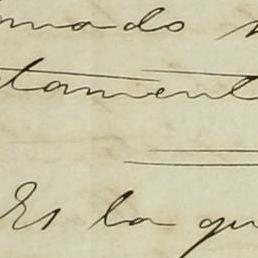 mado
tament
Es la qu